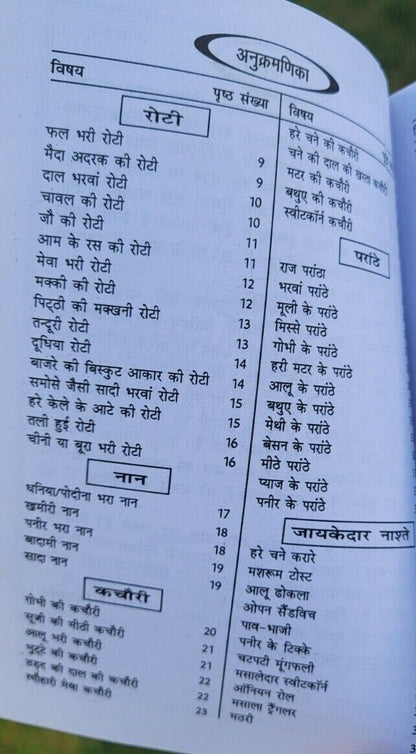 अनुक्रमणिका
विषय
पृष्ठ संख्या
रोटी
फल भरी रोटी 9
मैदा अदरक की रोटी 9
दाल भरवां रोटी 10
चावल की रोटी 10
जौ की रोटी 11
आम के रस की रोटी 11
मेवा भरी रोटी 12
मक्की की रोटी 12
पिट्ठी की मक्खनी रोटी 13
तन्दूरी रोटी 13
दूधिया रोटी 14
बाजरे की बिस्कुट आकार की रोटी 14
समोसे जैसी सादी भरवां रोटी 15
हरे केले के आटे की रोटी 15
तली हुई रोटी 16
चीनी या बूरा भरी रोटी 16
नान
धनिया/पोदीना भरा नान 17
खमीरी नान 18
पनीर भरा नान 18
बादामी नान 19
सादा नान 19
कचौरी
गोभी की कचौरी 20
सूजी की मीठी कचौरी 21
आलू भरी कचौरी 21
भुट्टे की कचौरी 22
उड़द की दाल की कचौरी 22
त्यौहारी मेवा कचौरी 23
विषय
हरे चने की कचौरी
चने की दाल की खस्ता कचौरी
मटर की कचौरी
बथुए की कचौरी
स्वीटकॉर्न कचौरी
परांठे
राज परांठा
भरवां परांठे
मूली के परांठे
मिस्से परांठे
गोभी के परांठे
हरी मटर के परांठे
आलू के परांठे
बथुए के परांठे
मेथी के परांठे
बेसन के परांठे
मीठे परांठे
प्याज के परांठे
पनीर के परांठे
जायकेदार नाश्ते
हरे चने करारे
मशरूम टोस्ट
आलू ढोकला
ओपन सैंडविच
पाव-भाजी
पनीर के टिक्के
चटपटी मूंगफली
मसालेदार स्वीटकॉर्न
ऑनियन रोल
मसाला ट्रैंगलर
मठरी